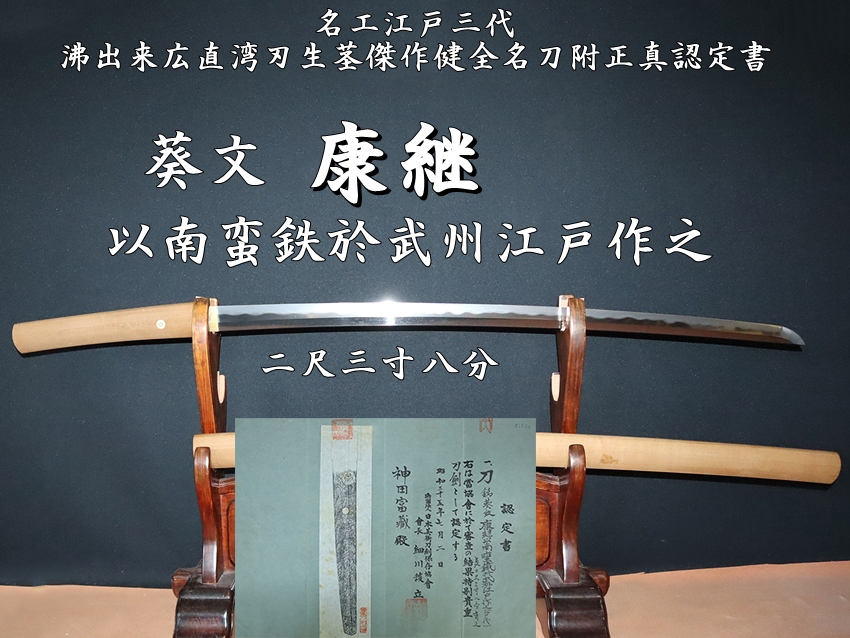 名工江戸三代
沸出来広直湾刃生茎傑作健全名刀附正真認定書
葵文 康継
以南蛮鉄於武州江戸作之
二尺三寸八分
認定書
一、刀
右は當協會に於て審査の結果特別貴重
刀剣として認定する
昭和三十五年七月二日
日本美術刀剣保存協會
會長 細川護立
神田富蔵殿